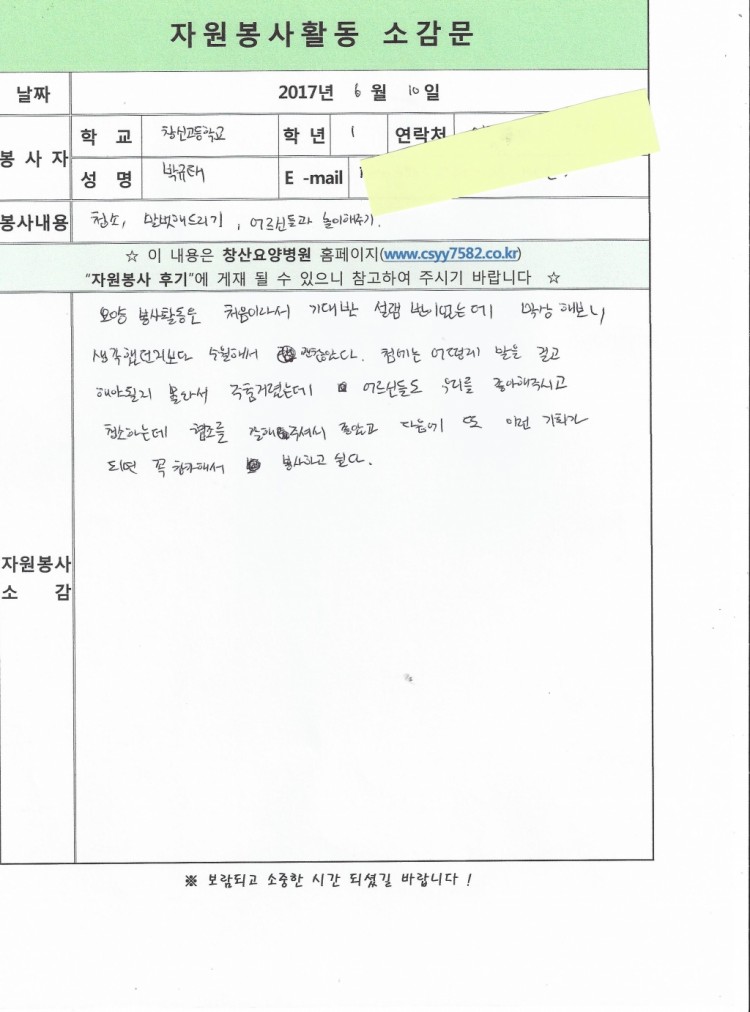 자원봉사활동 소감문
날짜 2017년 6 월 10 일
봉사자 학 교 창신고등학교 학 년 1 연락처
성 명 박규태 E -mail
봉사내용 청소, 말벗해드리기, 어르신들과 놀이해주기.
☆ 이 내용은 창산요양병원 홈페이지(www.csyy7582.co.kr)
"자원봉사 후기"에 게재 될 수 있으니 참고하여 주시기 바랍니다 ☆
요양 봉사활동은 처음이라서 기대반 설렘 반이었는데 막상 해보니
생각했던거보다 수월해서 괜찮았다. 첨에는 어떻게 말을 걸고
해야될지 몰라서 주춤거렸는데 어르신들도 우리를 좋아해주시고
청소하는데 협조를 잘해주셔서 좋았고 다음에 또 이런 기회가
되면 꼭 참가해서 봉사하고 싶다.
자원봉사
소 감
※ 보람되고 소중한 시간 되셨길 바랍니다 !